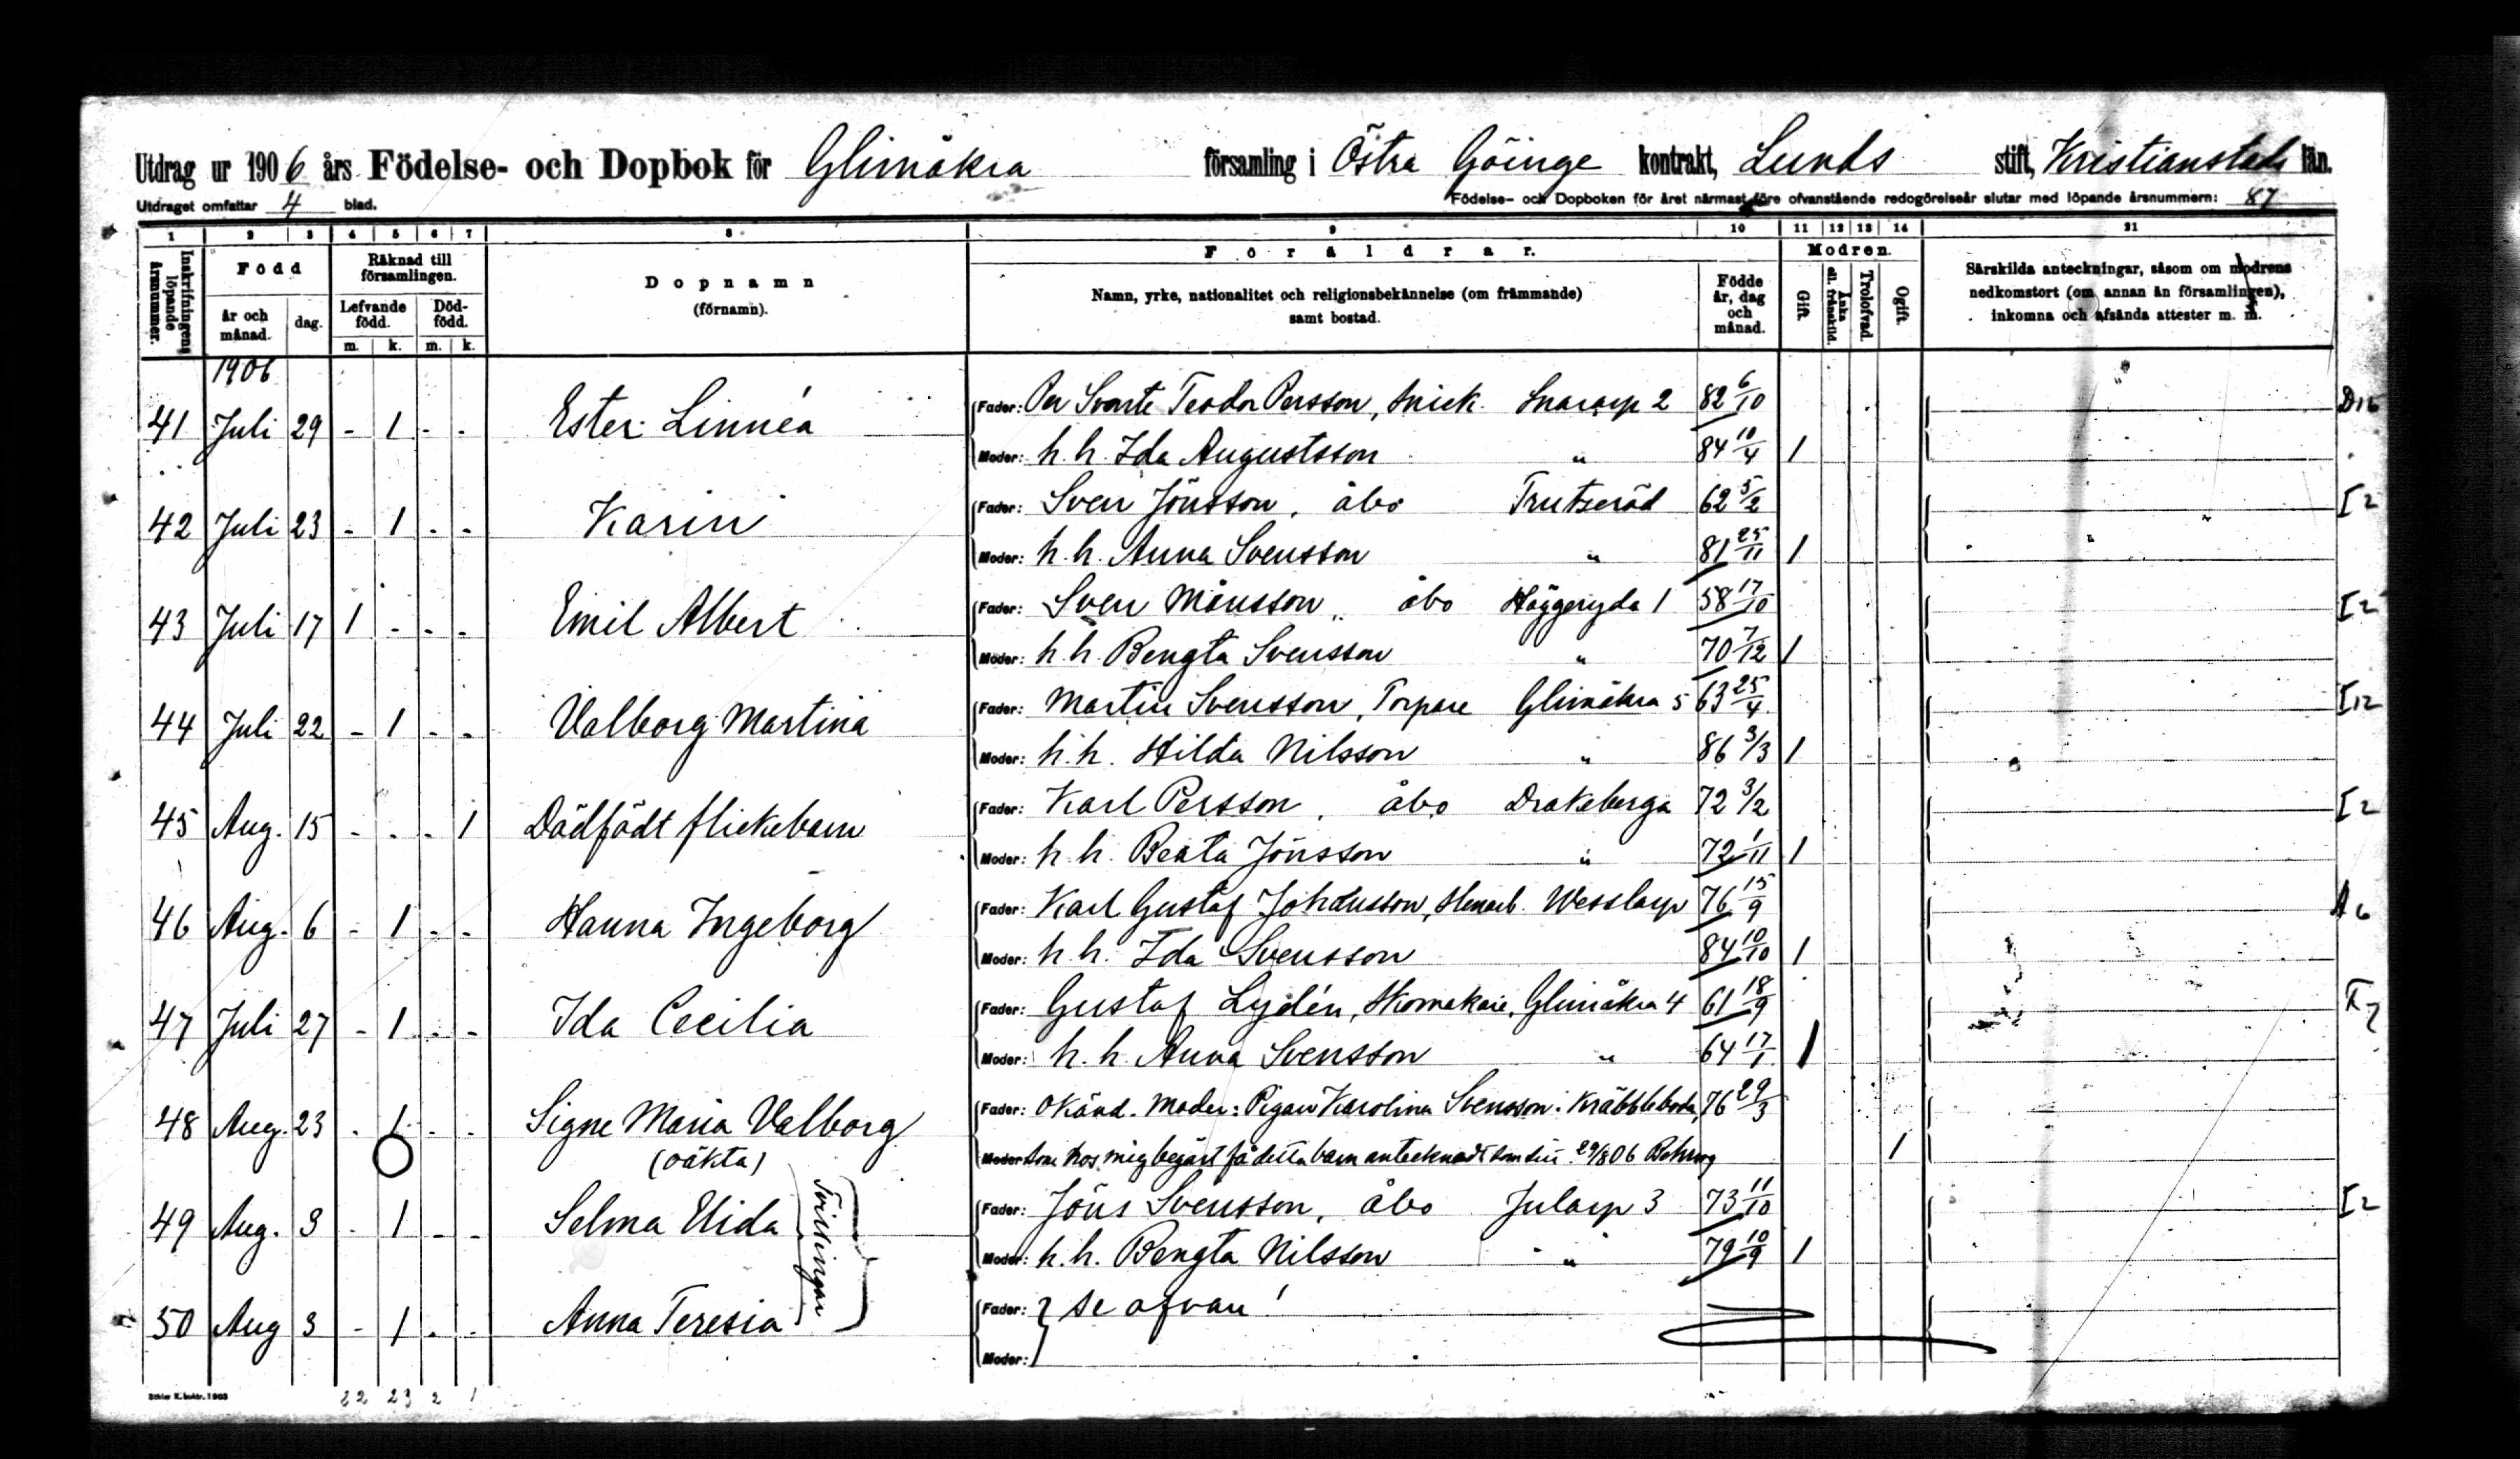 Utdrag ur 1906 års Födelse- och Dopbok för Glimåkra församling i Östra Göinge kontrakt, Lunds stift, Kristianstads län.
Utdraget omfattar 4 blad. Födelse- och Dopboken för året närmast före ofvanstående redogörelseår slutar med löpande årsnummern: 87
1 2 3 4 5 6 7 8 9 10 11 12 13 14 21
Inskrifningens löpande årsnummer.
Född
år och månad.
dag.
Räknad till församlingen.
Lefvande född.
Död-född.
m. k. m. k.
Dopnamn
(förnamn).
Föräldrar.
Namn, yrke, nationalitet och religionsbekännelse (om främmande)
samt bostad.
Födde år, dag och månad.
Modren.
Gift.
Änka ell. frånskild.
Trolofvad.
Ogift.
Särskilda anteckningar, såsom om modrens
nedkomstort (om annan än församlingen),
inkomna och afsända attester m. m.
1906
41 Juli 29 - 1 - - Ester Linnéa Fader: Per Svante Teodor Persson, Snick. Snararp 2 82 6/10 D16
Moder: h. h. Ida Augustsson " 84 10/4 1
42 Juli 23 - 1 - - Karin Fader: Sven Jönsson, åbo Trutseröd 62 5/2 I2
Moder: h. h. Anna Svensson " 81 25/11 1
43 Juli 17 1 - - - Emil Albert Fader: Sven Månsson, åbo Häggeryda 1 58 17/10 I2
Moder: h. h. Bengta Svensson " 70 7/12 1
44 Juli 22 - 1 - - Valborg Martina Fader: Martin Svensson, Torpare Glimåkra 5 63 25/4 I12
Moder: h. h. Hilda Nilsson " 86 3/3 1
45 Aug. 15 - - - 1 Dödfödt flickebarn Fader: Karl Persson, åbo Drakeberga 72 3/2 I2
Moder: h. h. Beata Jönsson " 72 1/11 1
46 Aug. 6 - 1 - - Hanna Ingeborg Fader: Karl Gustaf Johansson, Stenarb. Wesslarp 76 15/9 A6
Moder: h. h. Ida Svensson 84 10/10 1
47 Juli 27 - 1 - - Ida Cecilia Fader: Gustaf Lydén, Skomakare, Glimåkra 4 61 18/9
Moder: h. h. Anna Svensson " 64 17/1 1
48 Aug. 23 - 1 - - Signe Maria Valborg Fader: Okänd. Moder: Pigan Karolina Svensson i Kräbbleboda, 76 29/3
(oäkta) Moder: som hos mig begärt få detta barn antecknadt som sin 29/8 06 1
49 Aug. 3 - 1 - - Selma Elida Fader: Jöns Svensson, åbo Jularp 3 73 11/10 I2
Tvillingar
Moder: h. h. Bengta Nilsson " 79 10/9 1
50 Aug 3 - 1 - - Anna Teresia Fader: se ofvan!
Moder:
Sthlm K. boktr. 1903 22 23 2 1